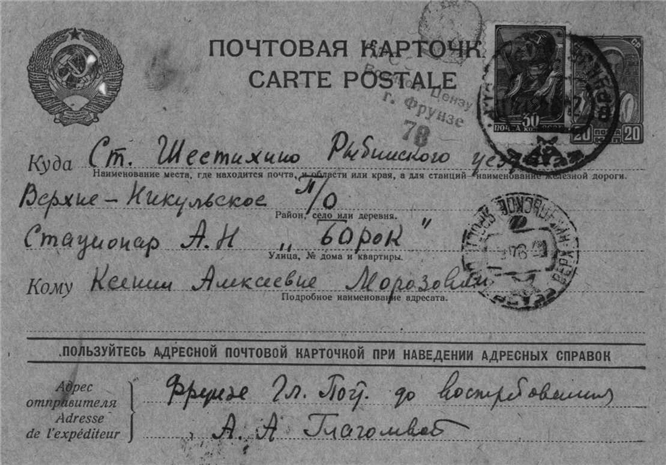 ПОЧТОВАЯ КАРТОЧК
CARTE POSTALE
Цензу
г. Фрунзе
78
30
20 20
Куда Ст. Шестихино Рыбинского уезда
Наименование места, где находится почта, и области или края, а для станций наименование железной дороги.
Верхне-Никульское п/о
Район, село или деревня.
Стационар А.Н „Борок"
Улица, № дома и квартиры.
Кому Ксении Алексеевне Морозовой
Подробное наименование адресата.
.ПОЛЬЗУЙТЕСЬ АДРЕСНОЙ ПОЧТОВОЙ КАРТОЧКОЙ ПРИ НАВЕДЕНИИ АДРЕСНЫХ СПРАВОК
Адрес отправителя
Adresse de l'expéditeur
Фрунзе Гл. Почт. до востребования
А. А